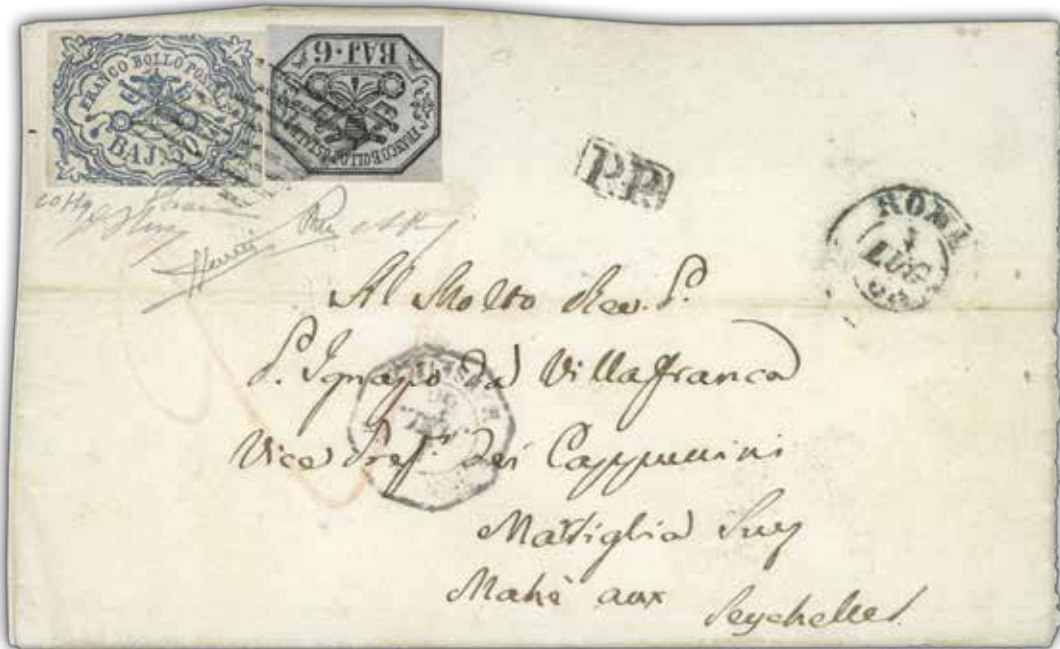 FRANCO BOLLO POSTALE
BAJ. 50
BAJ. 6
FRANCO BOLLO POSTALE
P.P.
ROMA
LUG
Al Molto Rev. P.
P. Ignazio da Villafranca
Vice Pref. dei Cappuccini
Marsiglia Suez
Mahè aux
Seychelles.